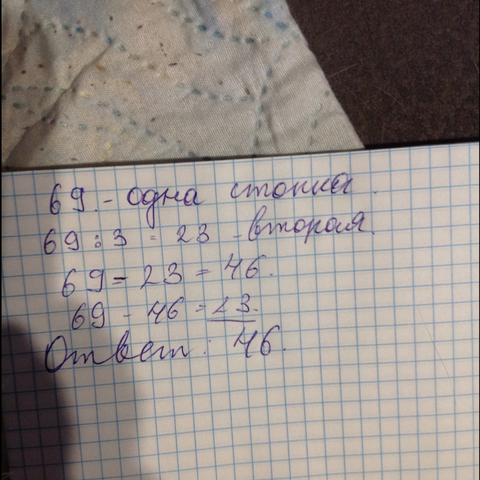 69.- одна стопка.
69 : 3 = 23 - вторая.
69 - 23 = 46.
69 - 46 = 23.
Ответ: 46.